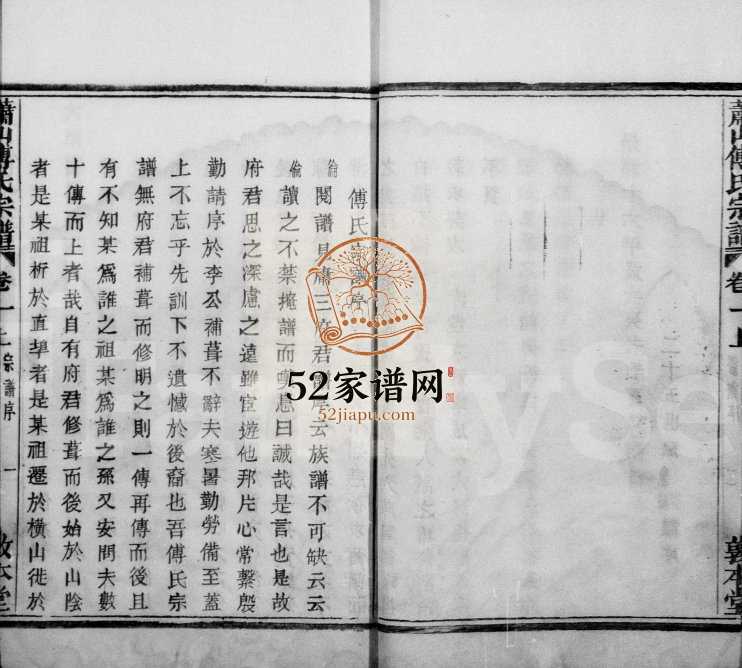 蕭山傅氏宗譜
卷一上
敦本堂
傅氏宗譜序
倫閱譜見肅三府君譜序云族譜不可缺云云
倫讀之不禁掩譜而嘆息曰誠哉是言也是故
府君思之深慮之遠雖宦遊他邦片心常繫殷
勤請序於李公補葺不辭夫寒暑勤勞備至蓋
上不忘乎先訓下不遺憾於後裔也吾傅氏宗
譜無府君補葺而修明之則一傳再傳而後且
有不知某爲誰之祖某爲誰之孫又安問夫數
十傳而上者哉自有府君修葺而後始於山陰
者是某祖析於直埠者是某祖遷於橫山徙於
蕭山傅氏宗譜
卷一上 宗譜序 一
敦本堂
52家谱网
52jiapu.com